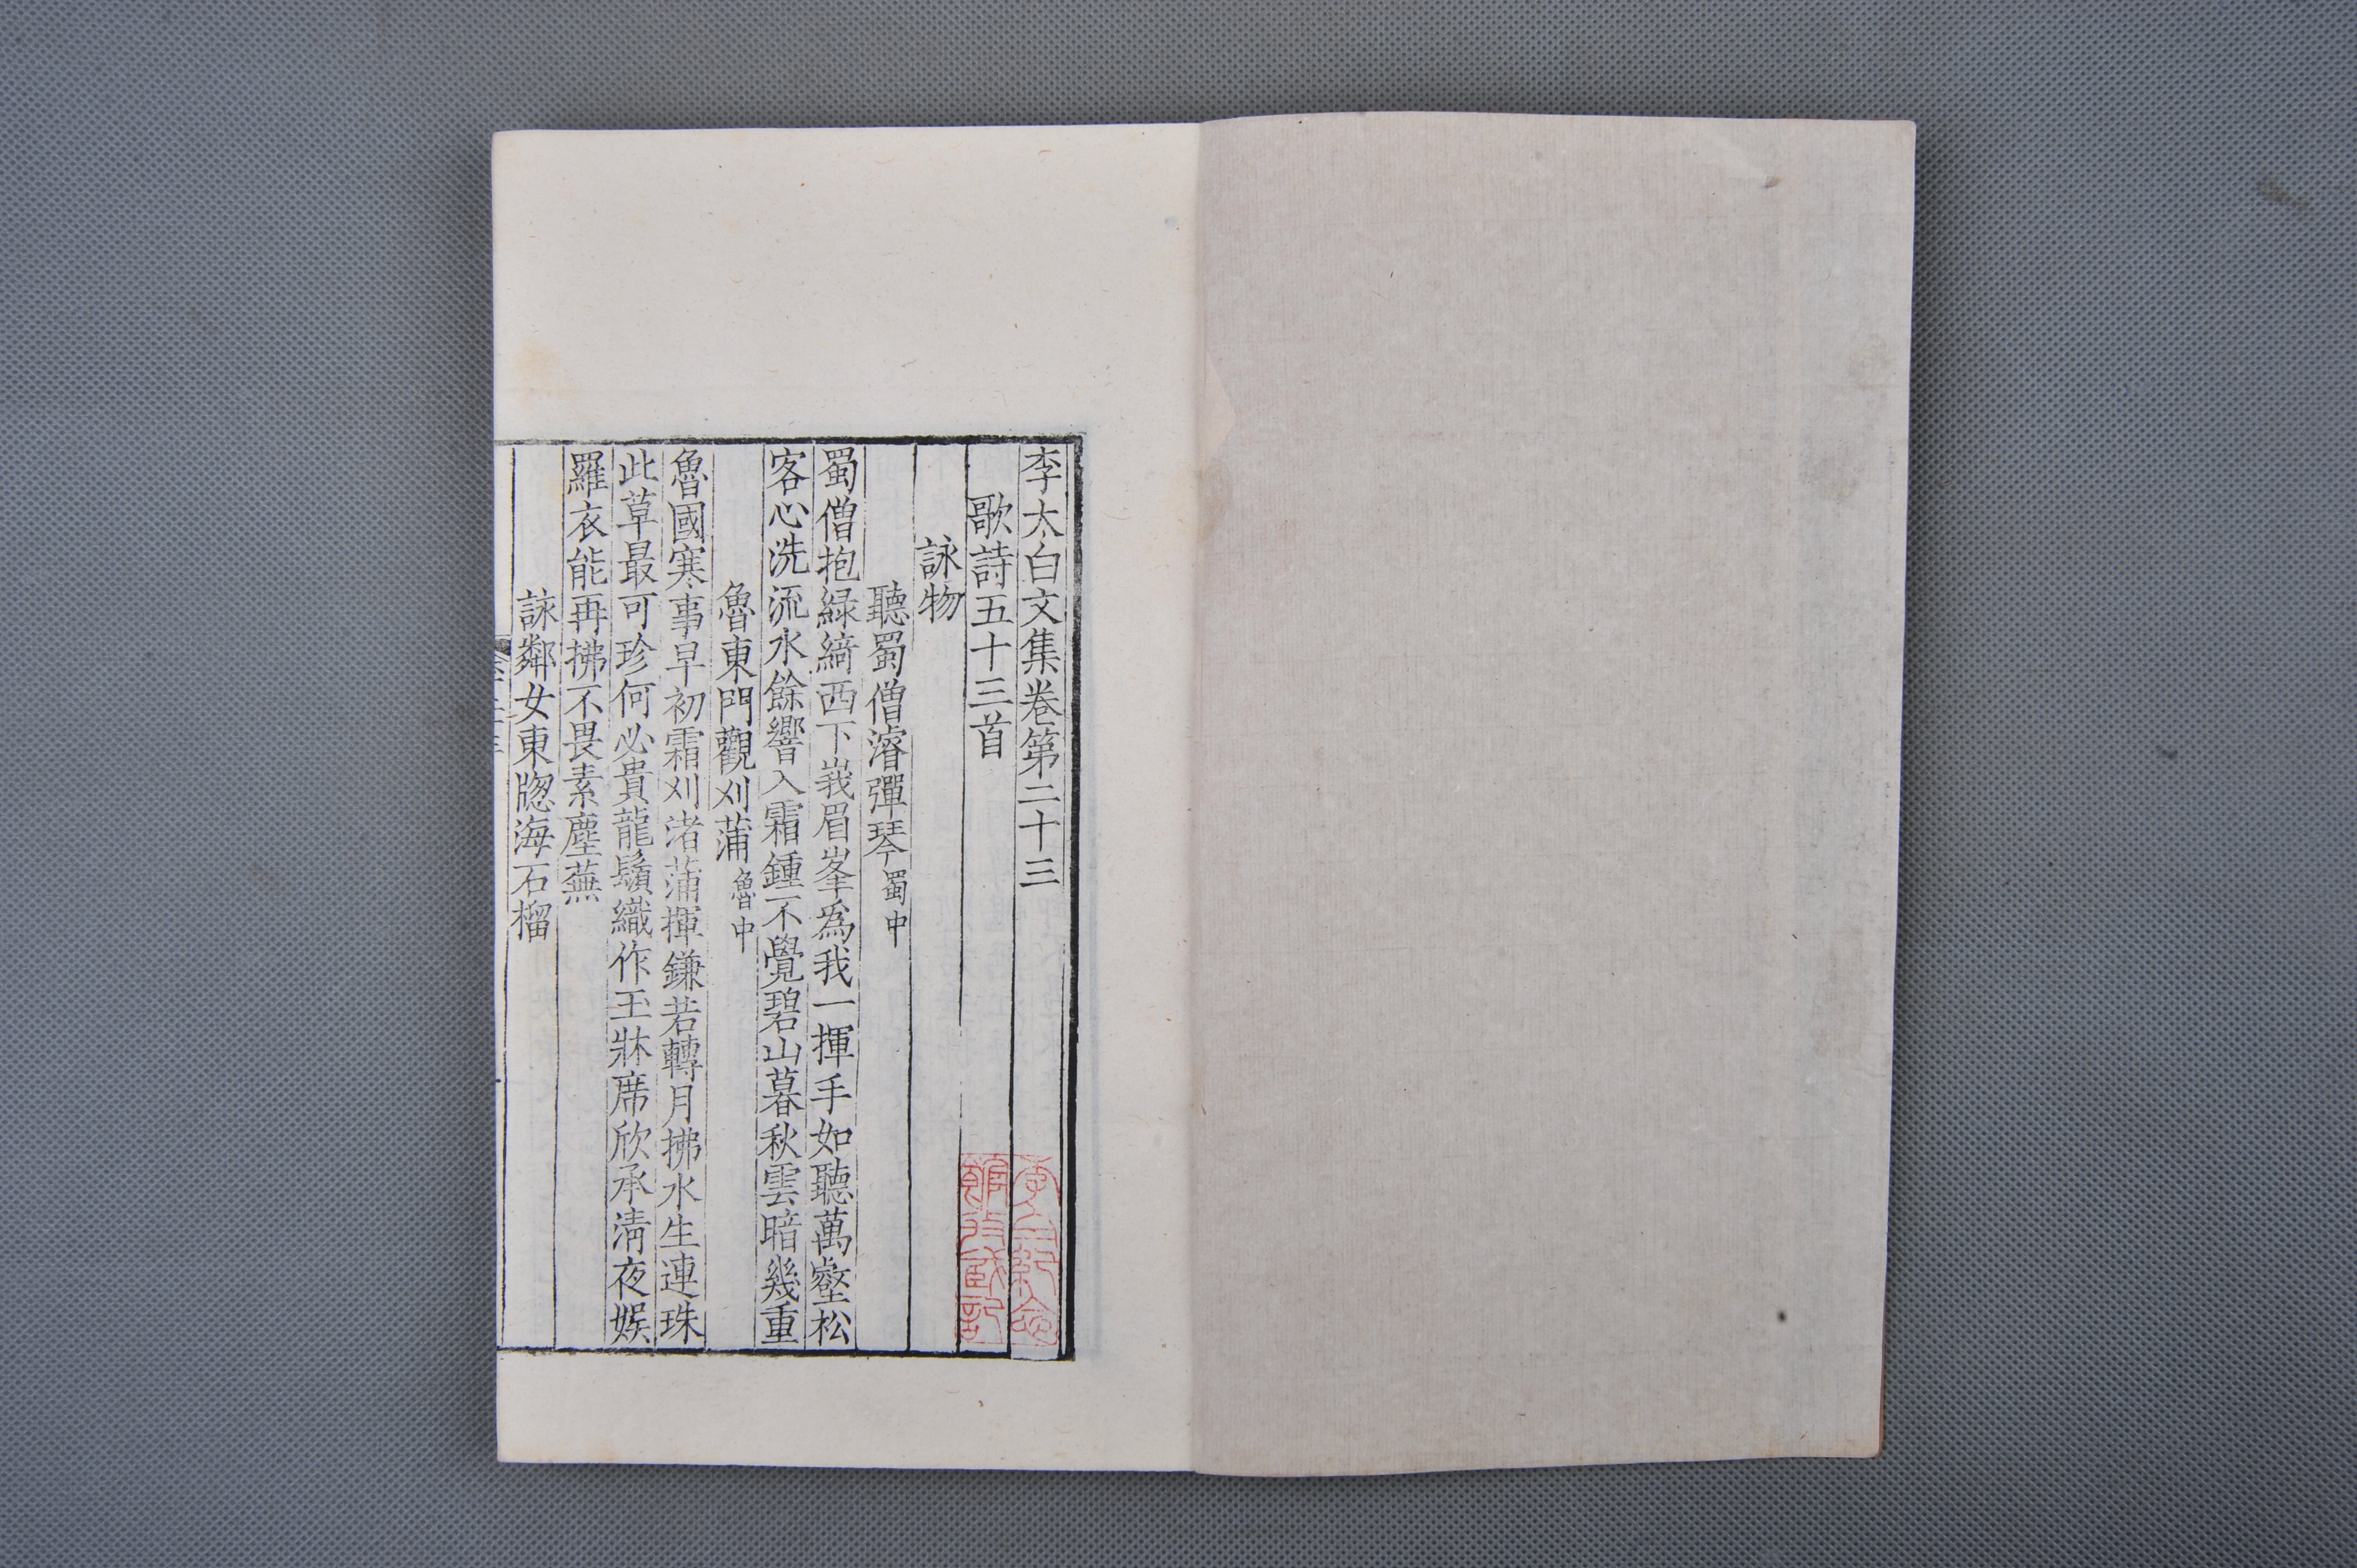 李太白文集卷第二十三
歌詩五十三首
詠物
聽蜀僧濬彈琴蜀中
蜀僧抱緑綺西下峩眉峯爲我一揮手如聽萬壑松
客心洗流水餘響入霜鍾不覺碧山暮秋雲暗幾重
魯東門觀刈蒲魯中
魯國寒事早初霜刈渚蒲揮鎌若轉月拂水生連珠
此草最可珍何必貴龍鬚織作玉牀席欣承清夜娱
羅衣能再拂不畏素塵蕪
詠鄰女東牎海石榴
李白紀念
館收藏記